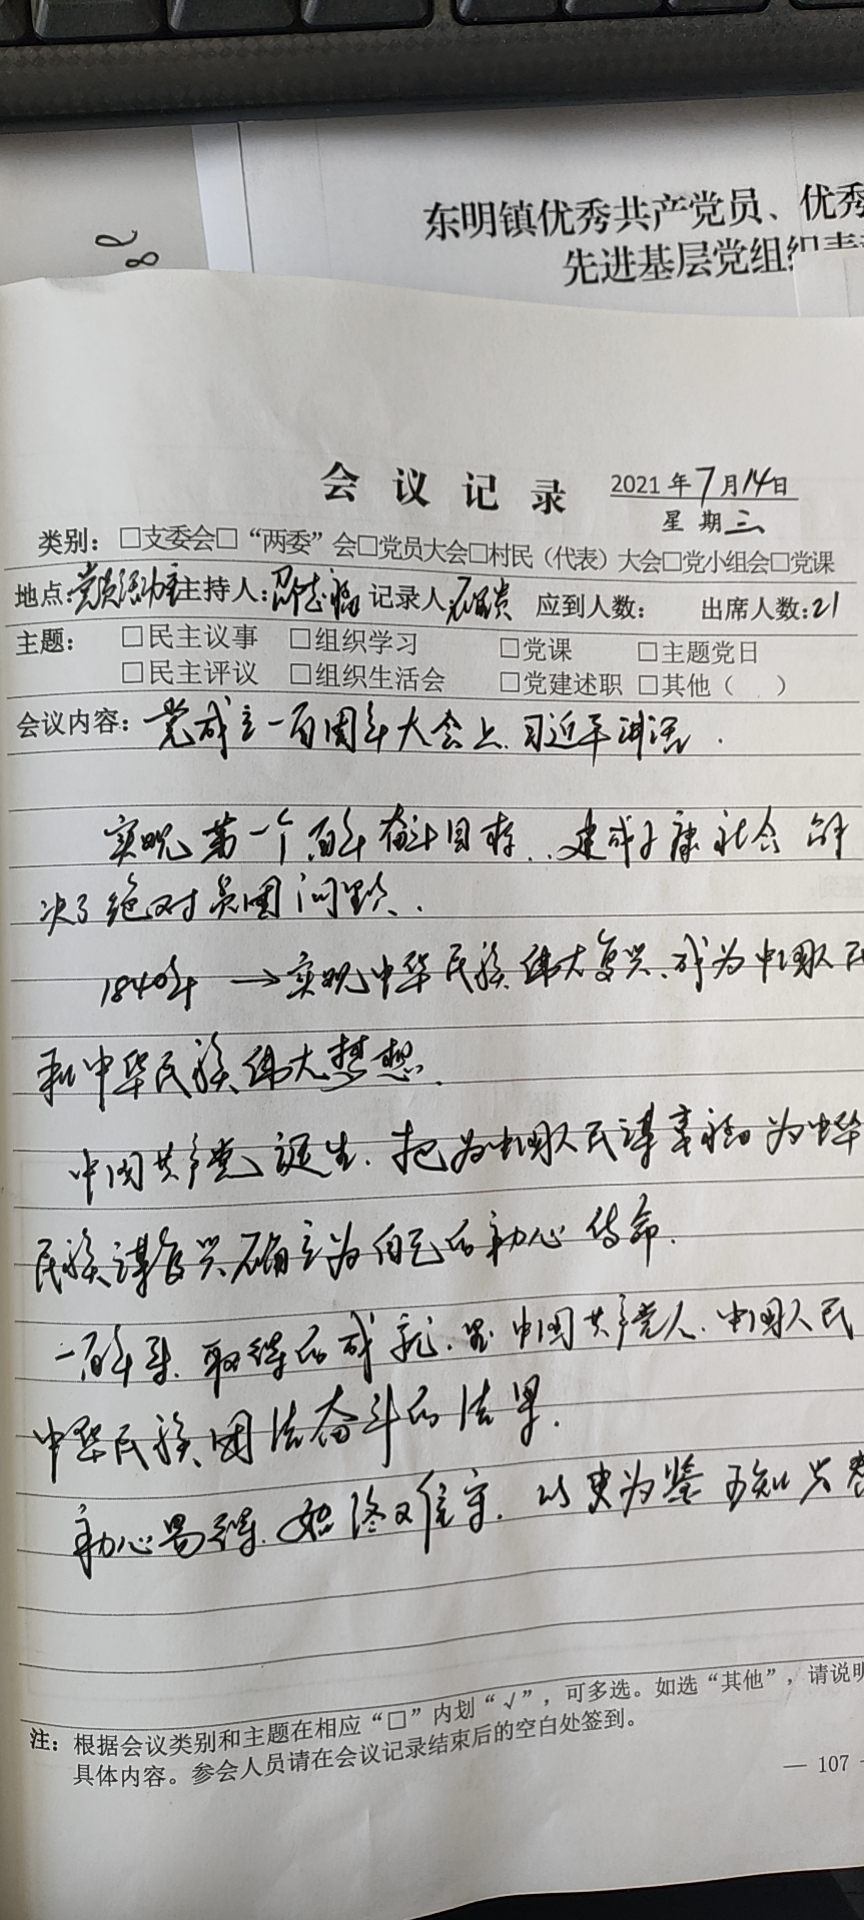 东明镇优秀共产党员、优秀
先进基层党组织表
会议记录 2021年7月14日
星期三
类别：□支委会□“两委”会□党员大会□村民（代表）大会□党小组会□党课
地点：党员活动室主持人：邵志福 记录人 应到人数： 出席人数：21
主题： □民主议事 □组织学习 □党课 □主题党日
□民主评议 □组织生活会 □党建述职 □其他（ ）
会议内容：党成立一百周年大会上.习近平讲话.
实现第一个百年奋斗目标..建成小康社会 解
决了绝对贫困问题.
1840年→实现中华民族伟大复兴.成为中国人民
和中华民族伟大梦想.
中国共产党诞生.把为中国人民谋幸福为中华
民族谋复兴确立为自己的初心使命.
一百年来.取得的成就.是中国共产党人.中国人民
中华民族团结奋斗的结果.
初心易得.始终难守.以史为鉴可知兴替
注：根据会议类别和主题在相应“□”内划“√”，可多选。如选“其他”，请说明
具体内容。参会人员请在会议记录结束后的空白处签到。
— 107 —